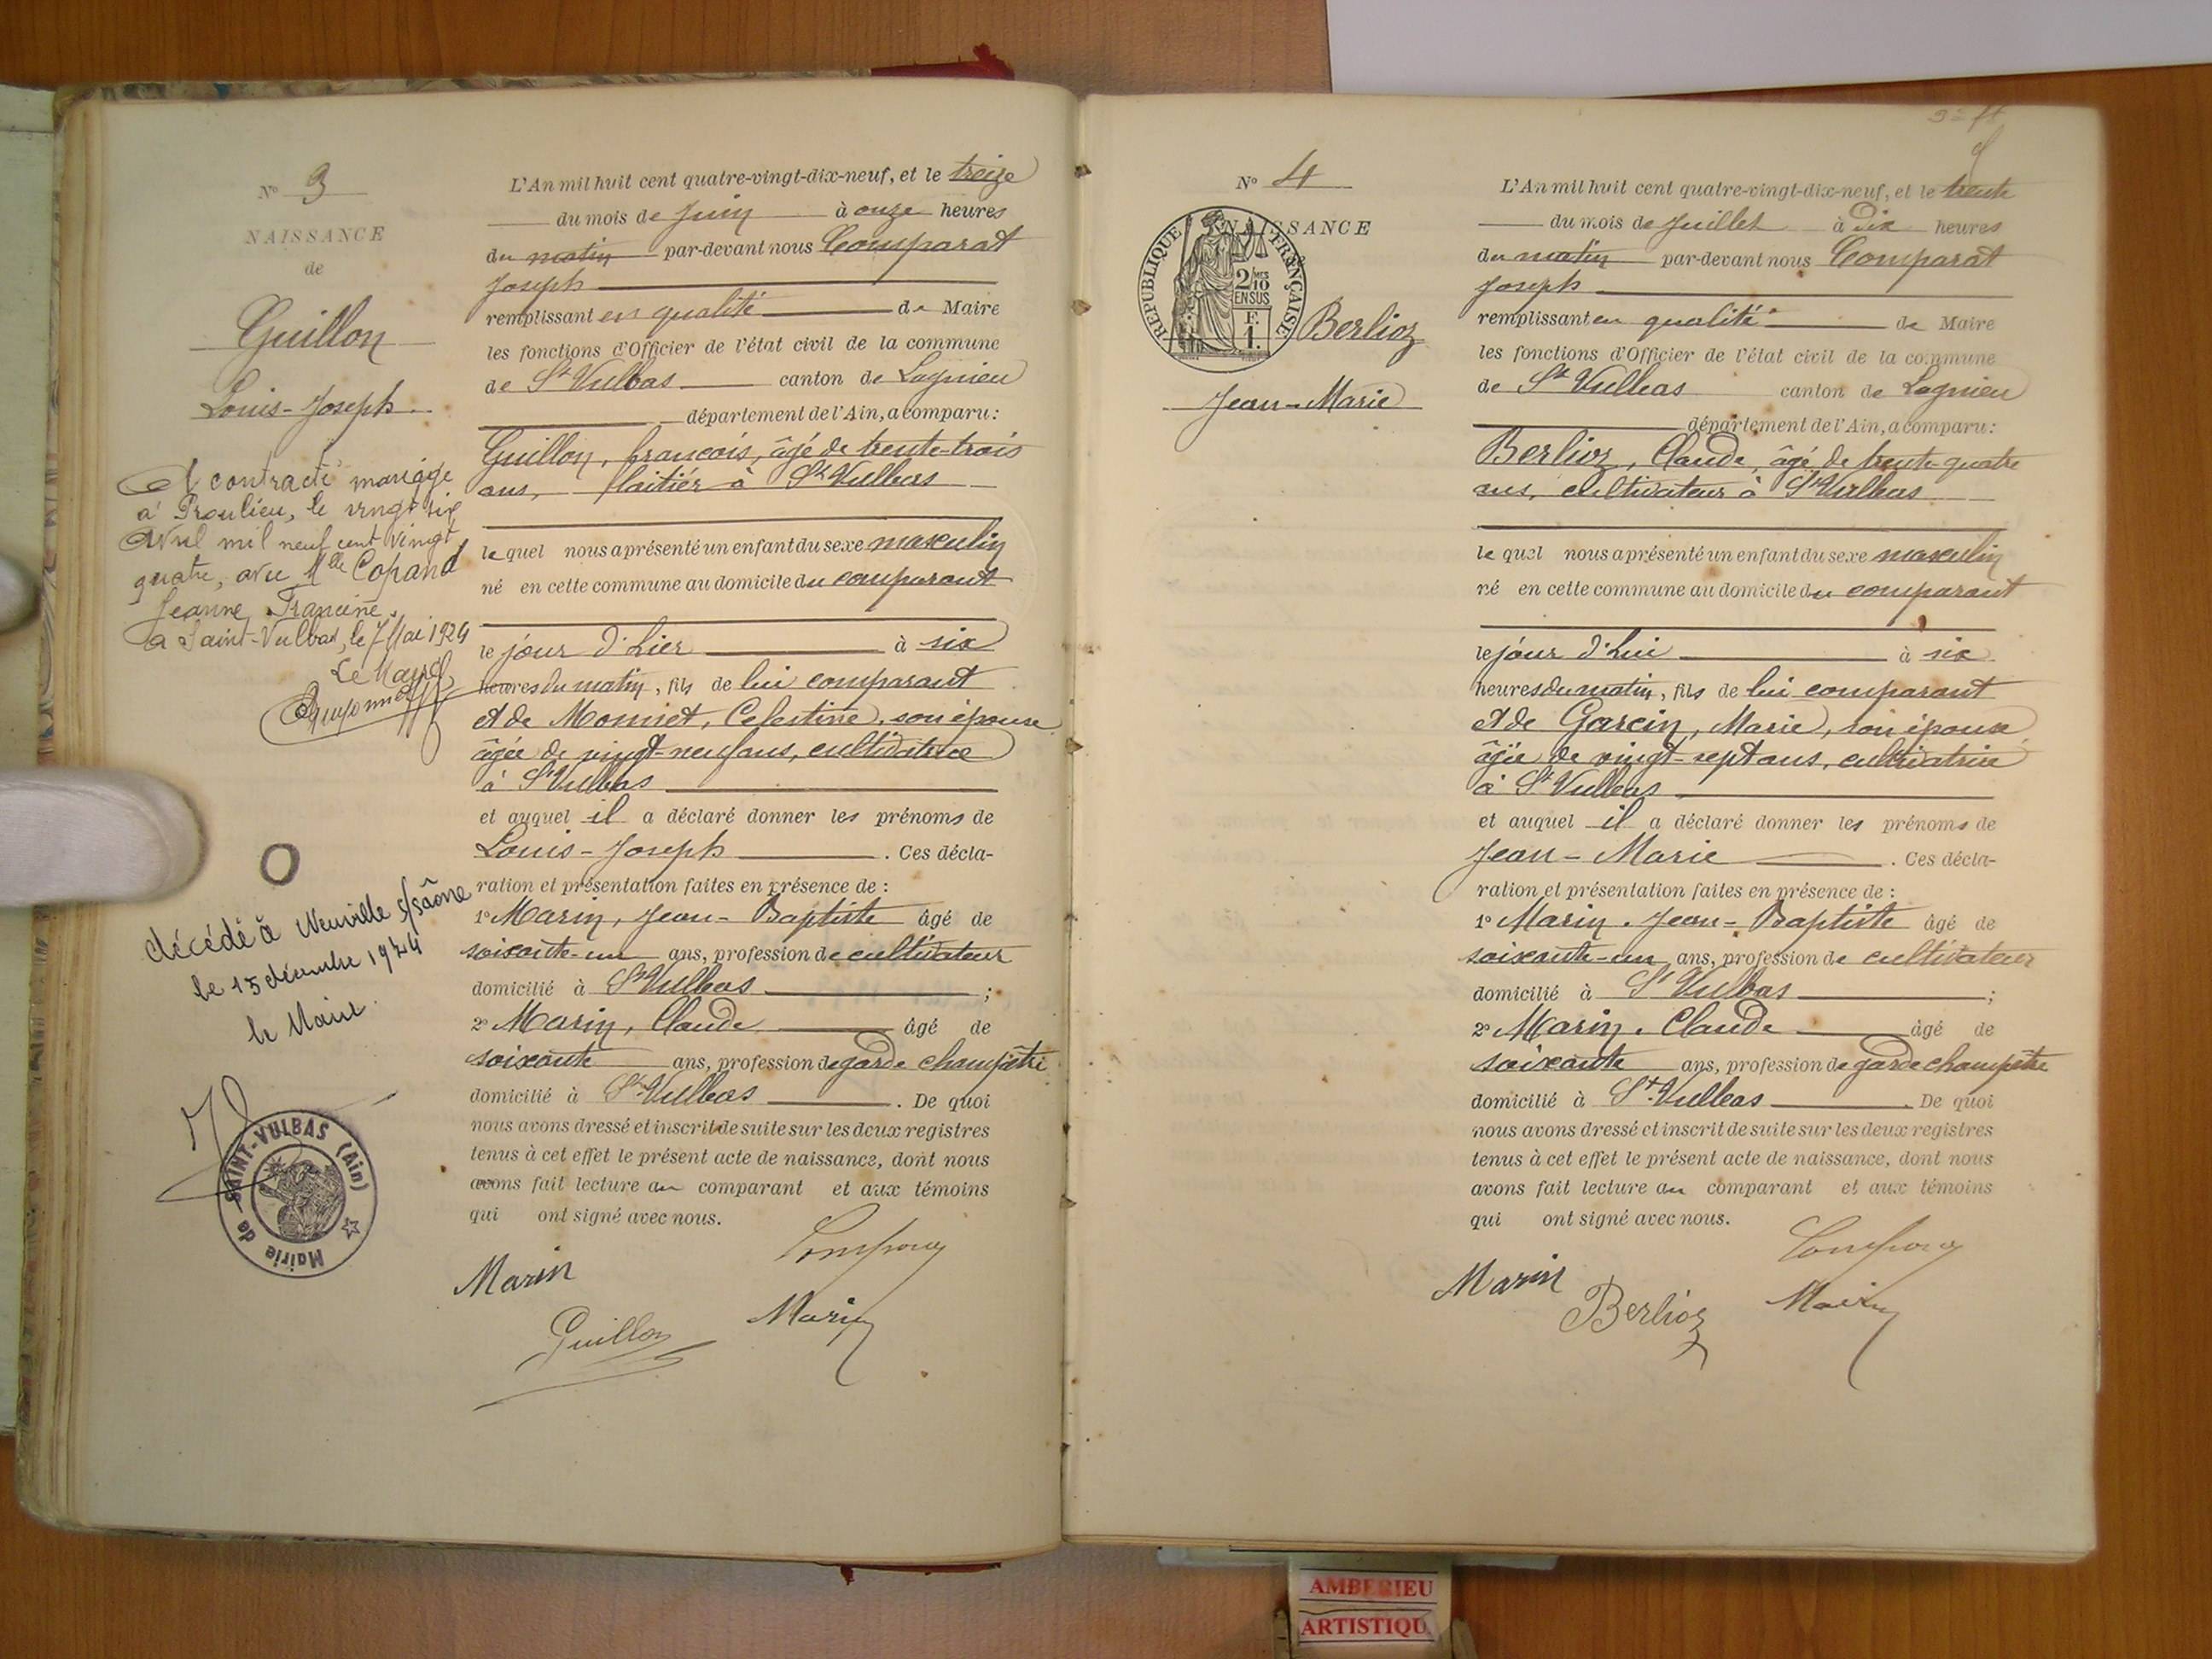 N° 3
NAISSANCE
de
Guillon
Louis-Joseph
A contracté mariage
à Proulieu, le vingt six
Avril mil neuf cent vingt
quatre, avec Mlle Copand
Jeanne Francine.
à Saint-Vulbas, le 7 Mai 1924
Le Maire
décédé à Neuville s/saône
le 15 décembre 1974
le Maire
Mairie de SAINT-VULBAS (Ain)
L'An mil huit cent quatre-vingt-dix-neuf, et le treize
du mois de Juin à onze heures
du matin par-devant nous Comparat
Joseph
remplissant en qualité de Maire
les fonctions d'Officier de l'état civil de la commune
de St Vulbas canton de Lagnieu
département de l'Ain, a comparu:
Guillon, francois, âgé de trente-trois
ans, laitier à St Vulbas
le quel nous a présenté un enfant du sexe masculin
né en cette commune au domicile du comparant
le jour d'hier à six
heures du matin, fils de lui comparant
et de Monnet, Celestine, son épouse
âgée de vingt-neuf ans, cultivatrice
à St Vulbas
et auquel il a déclaré donner les prénoms de
Louis-Joseph. Ces décla-
ration et présentation faites en présence de :
1° Marin, Jean-Baptiste âgé de
soixante-un ans, profession de cultivateur
domicilié à St Vulbas ;
2° Marin, Claude âgé de
soixante ans, profession de garde champêtre
domicilié à St Vulbas. De quoi
nous avons dressé et inscrit de suite sur les deux registres
tenus à cet effet le présent acte de naissance, dont nous
avons fait lecture au comparant et aux témoins
qui ont signé avec nous.
Marin
Guillon
Marin
N° 4
NAISSANCE
RÉPUBLIQUE FRANÇAISE
2/10 EN SUS
F. 1.
Berlioz
Jean-Marie
L'An mil huit cent quatre-vingt-dix-neuf, et le trente
du mois de Juillet à Dix heures
du matin par-devant nous Comparat
Joseph
remplissant en qualité de Maire
les fonctions d'Officier de l'état civil de la commune
de St Vulbas canton de Lagnieu
département de l'Ain, a comparu:
Berlioz, Claude, âgé de trente-quatre
ans, cultivateur à St Vulbas
le quel nous a présenté un enfant du sexe masculin
né en cette commune au domicile du comparant
le jour d'hui à six
heures du matin, fils de lui comparant
et de Garcin, Marie, son épouse
âgée de vingt-sept ans, cultivatrice
à St Vulbas
et auquel il a déclaré donner les prénoms de
Jean-Marie. Ces décla-
ration et présentation faites en présence de :
1° Marin. Jean-Baptiste âgé de
soixante-un ans, profession de cultivateur
domicilié à St Vulbas ;
2° Marin. Claude âgé de
soixante ans, profession de garde champêtre
domicilié à St Vulbas. De quoi
nous avons dressé et inscrit de suite sur les deux registres
tenus à cet effet le présent acte de naissance, dont nous
avons fait lecture au comparant et aux témoins
qui ont signé avec nous.
Marin
Berlioz
Marin
AMBERIEU
ARTISTIQU